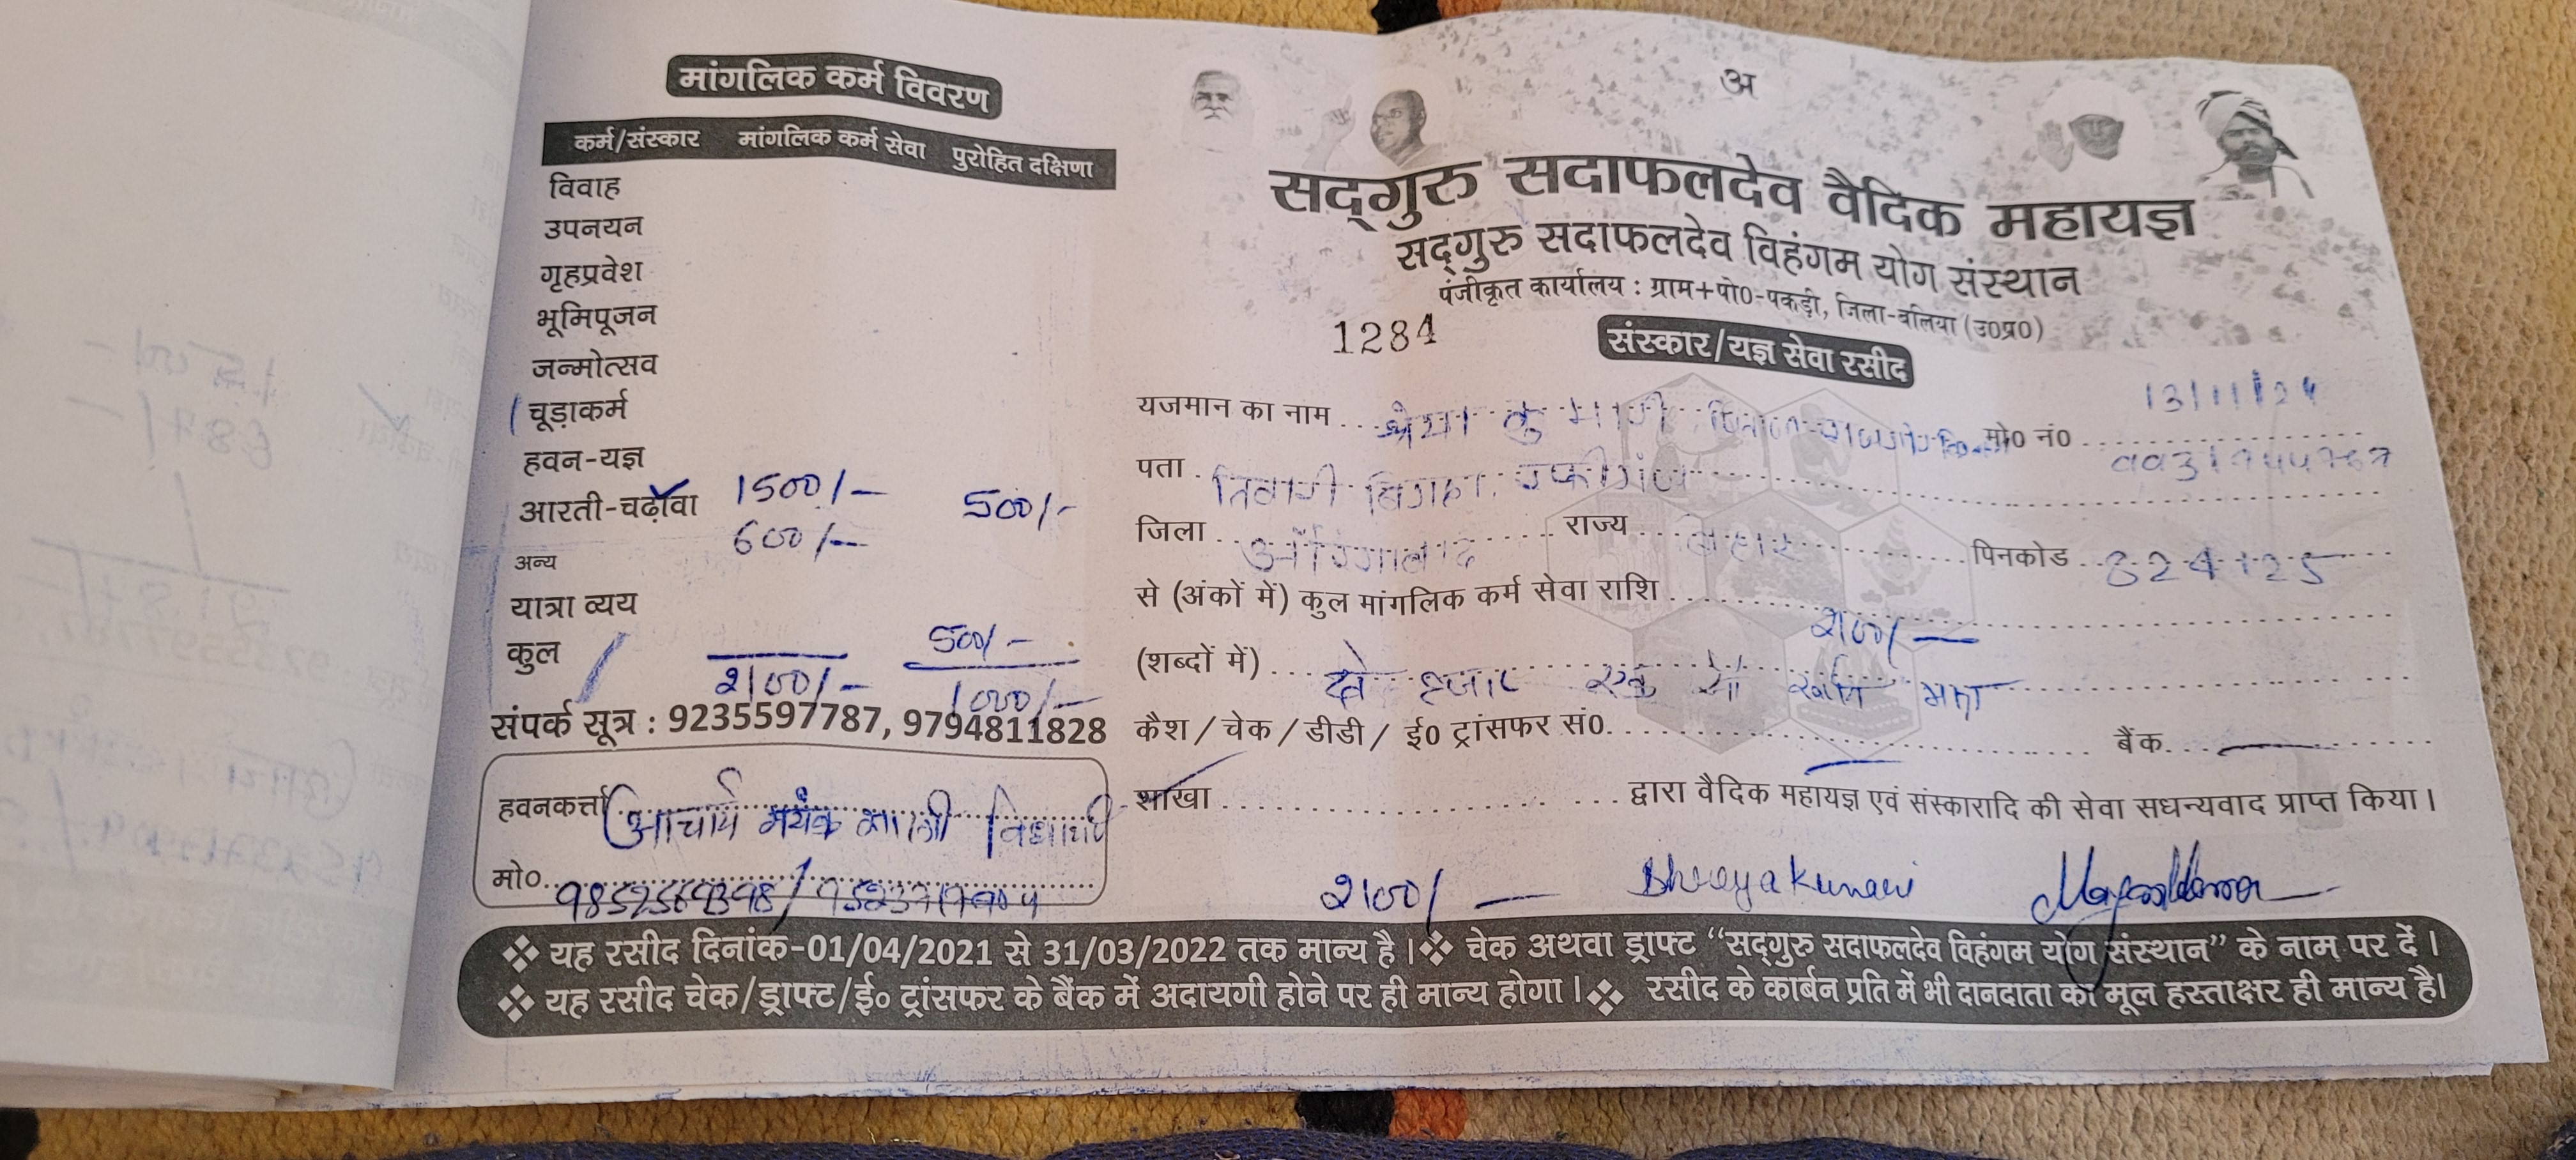 मांगलिक कर्म विवरण
कर्म/संस्कार मांगलिक कर्म सेवा पुरोहित दक्षिणा
विवाह
उपनयन
गृहप्रवेश
भूमिपूजन
जन्मोत्सव
चूड़ाकर्म
हवन-यज्ञ
आरती-चढ़ावा 1500/- 500/-
600/-
अन्य
यात्रा व्यय
500/-
कुल 2100/- 1000/-
संपर्क सूत्र : 9235597787, 9794811828
हवनकर्त्ता आचार्य मयंक
मो०
अ
सद्गुरु सदाफलदेव वैदिक महायज्ञ
सद्गुरु सदाफलदेव विहंगम योग संस्थान
पंजीकृत कार्यालय : ग्राम+पो0-पकड़ी, जिला-बलिया (उ0प्र0)
1284
संस्कार/यज्ञ सेवा रसीद
13/11/24
यजमान का नाम श्रेया कुमारी मो0 नं0
पता तिवारी बिगहा, रफीगंज
जिला औरंगाबाद राज्य बिहार पिनकोड 824125
से (अंकों में) कुल मांगलिक कर्म सेवा राशि 2100/-
(शब्दों में) दो हजार एक सौ मात्र
कैश / चेक / डीडी / ई0 ट्रांसफर सं0. बैंक
शाखा द्वारा वैदिक महायज्ञ एवं संस्कारादि की सेवा सधन्यवाद प्राप्त किया।
2100/- Shreya Kumari
❖ यह रसीद दिनांक-01/04/2021 से 31/03/2022 तक मान्य है। ❖ चेक अथवा ड्राफ्ट “सद्गुरु सदाफलदेव विहंगम योग संस्थान” के नाम पर दें।
❖ यह रसीद चेक/ड्राफ्ट/ई० ट्रांसफर के बैंक में अदायगी होने पर ही मान्य होगा। ❖ रसीद के कार्बन प्रति में भी दानदाता का मूल हस्ताक्षर ही मान्य है।